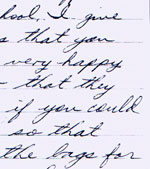 hool. I give
s that you
very happy
- that they
if you could
so that
the bags for